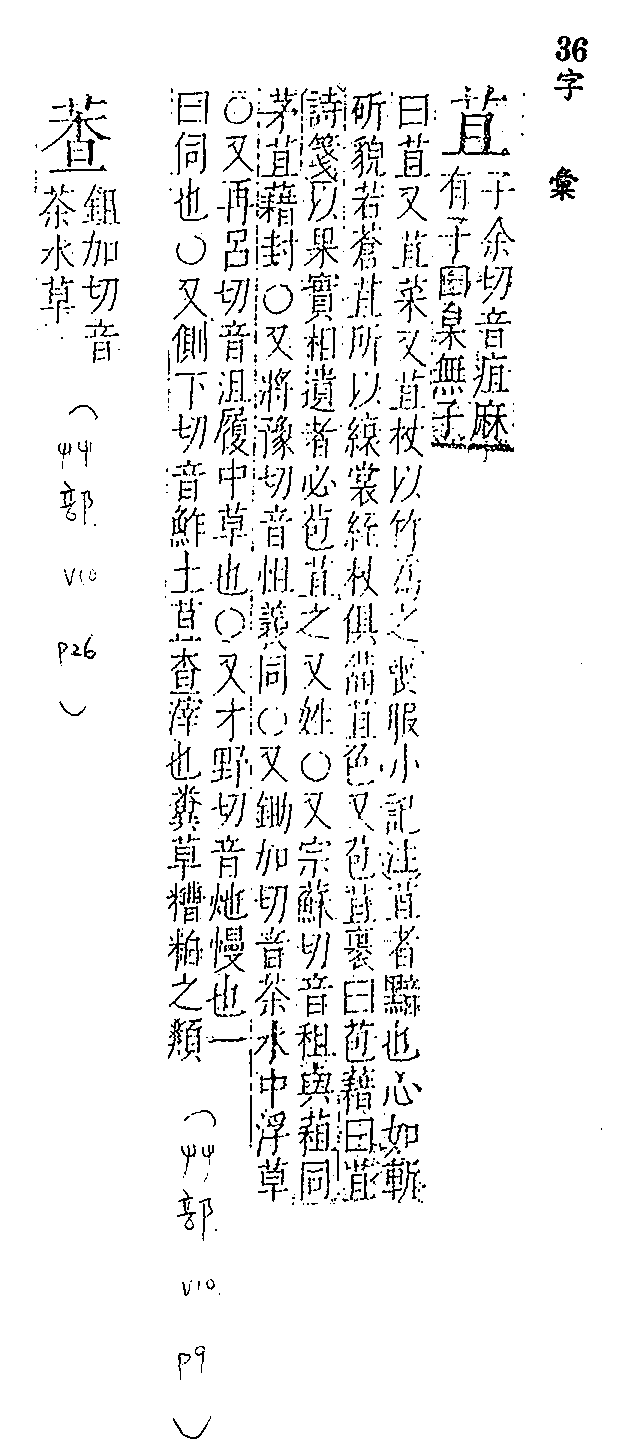 36
字彙
苴 子余切音疽麻
有子曰苴枲無子
曰苴又苴菜又苴杖以竹爲之喪服小記注苴者黯也心如斬
斫貌若蒼苴所以縗裳絰杖俱備苴色又苞苴裹曰苞藉曰苴
詩箋以果實相遺者必苞苴之又姓○又宗蘇切音租與蒩同
茅苴藉封○又將豫切音怚義同○又鋤加切音茶水中浮草
○又再呂切音沮履中草也○又才野切音灺慢也一
曰伺也○又側下切音鮓土苴查滓也糞草糟粕之類
(艸部 v10 p9)
䕢 鉏加切音
茶水草
(艸部 v10 p26)